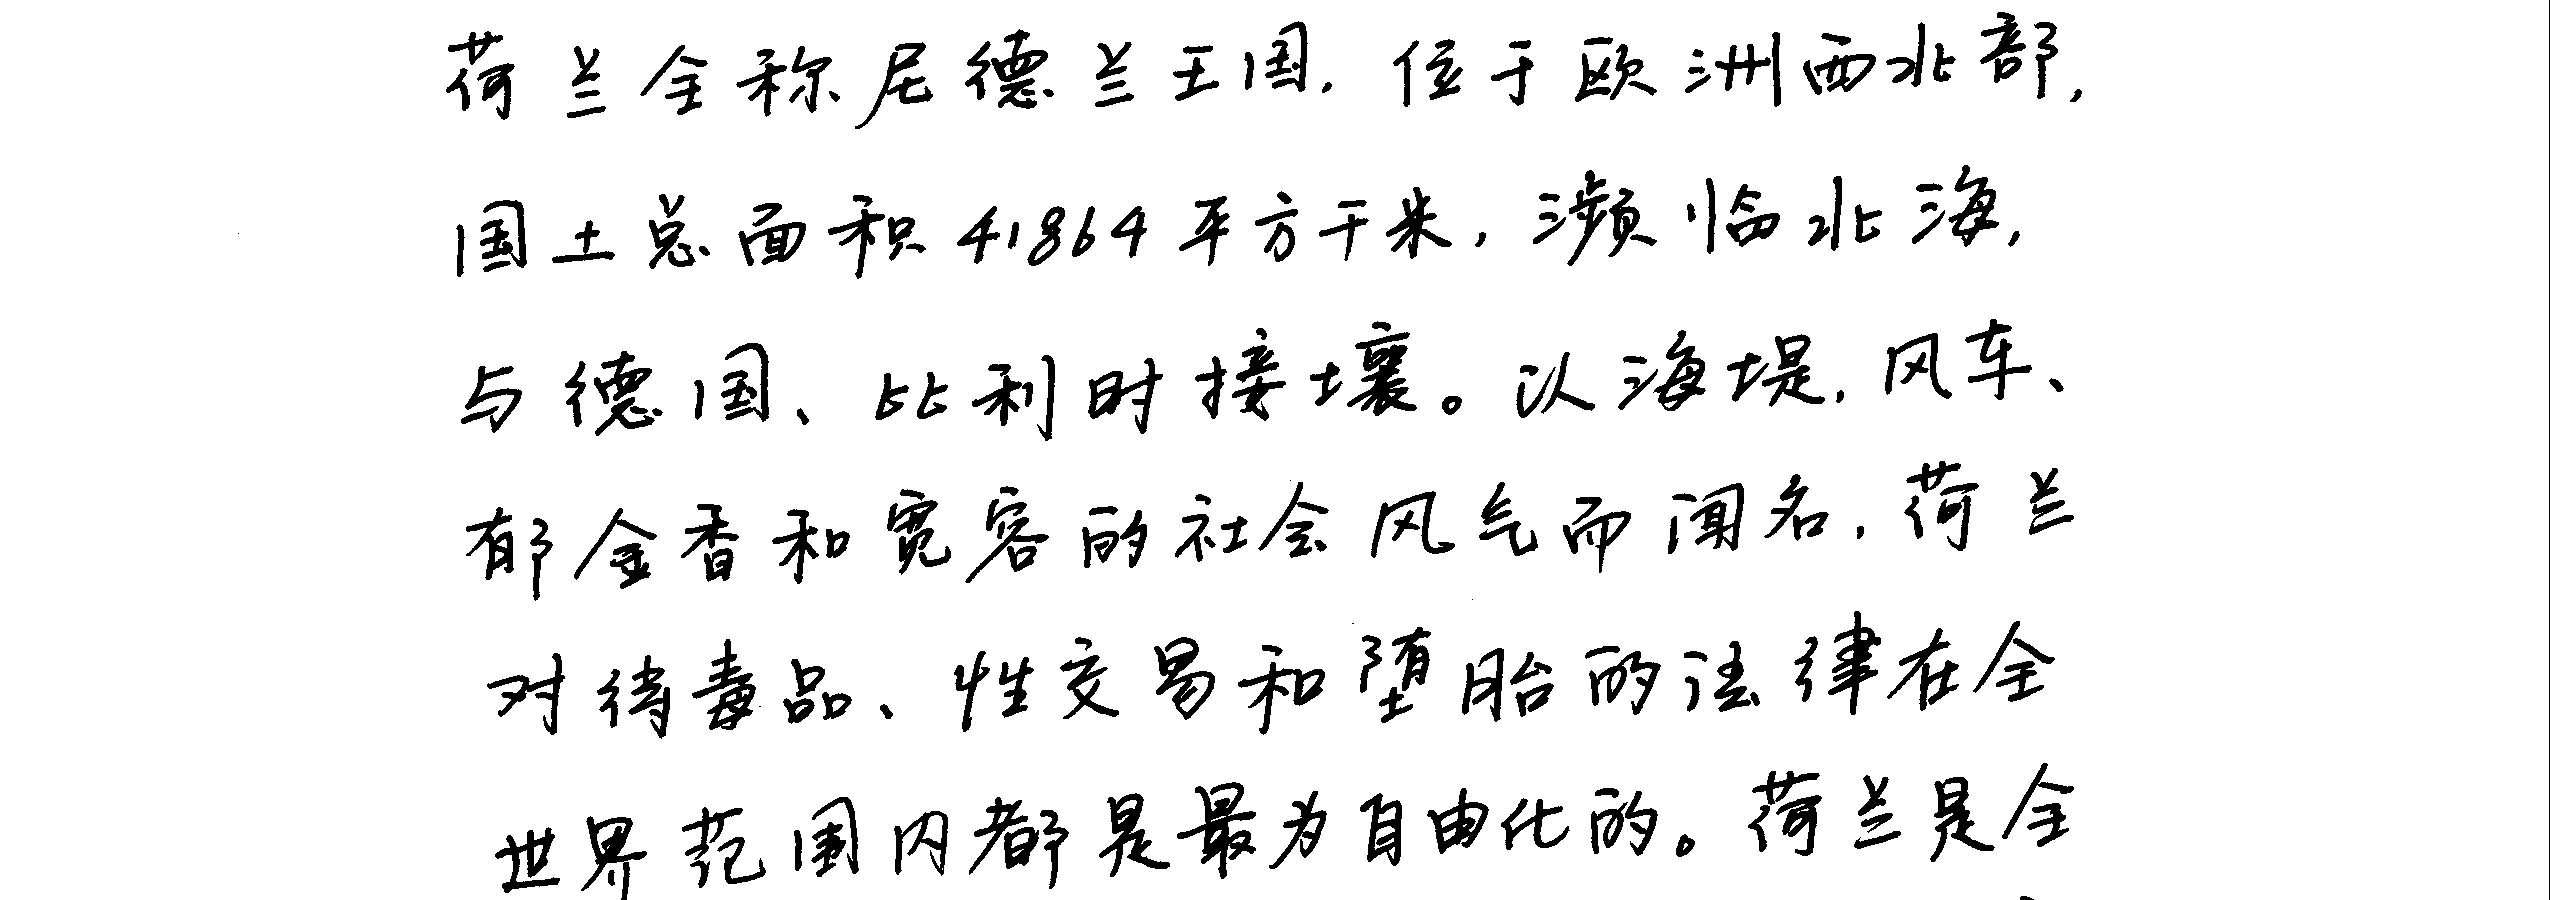 荷兰全称尼德兰王国，位于欧洲西北部，
国土总面积41864平方千米，濒临北海，
与德国、比利时接壤。以海堤，风车、
郁金香和宽容的社会风气而闻名，荷兰
对待毒品、性交易和堕胎的法律在全
世界范围内都是最为自由化的。荷兰是全